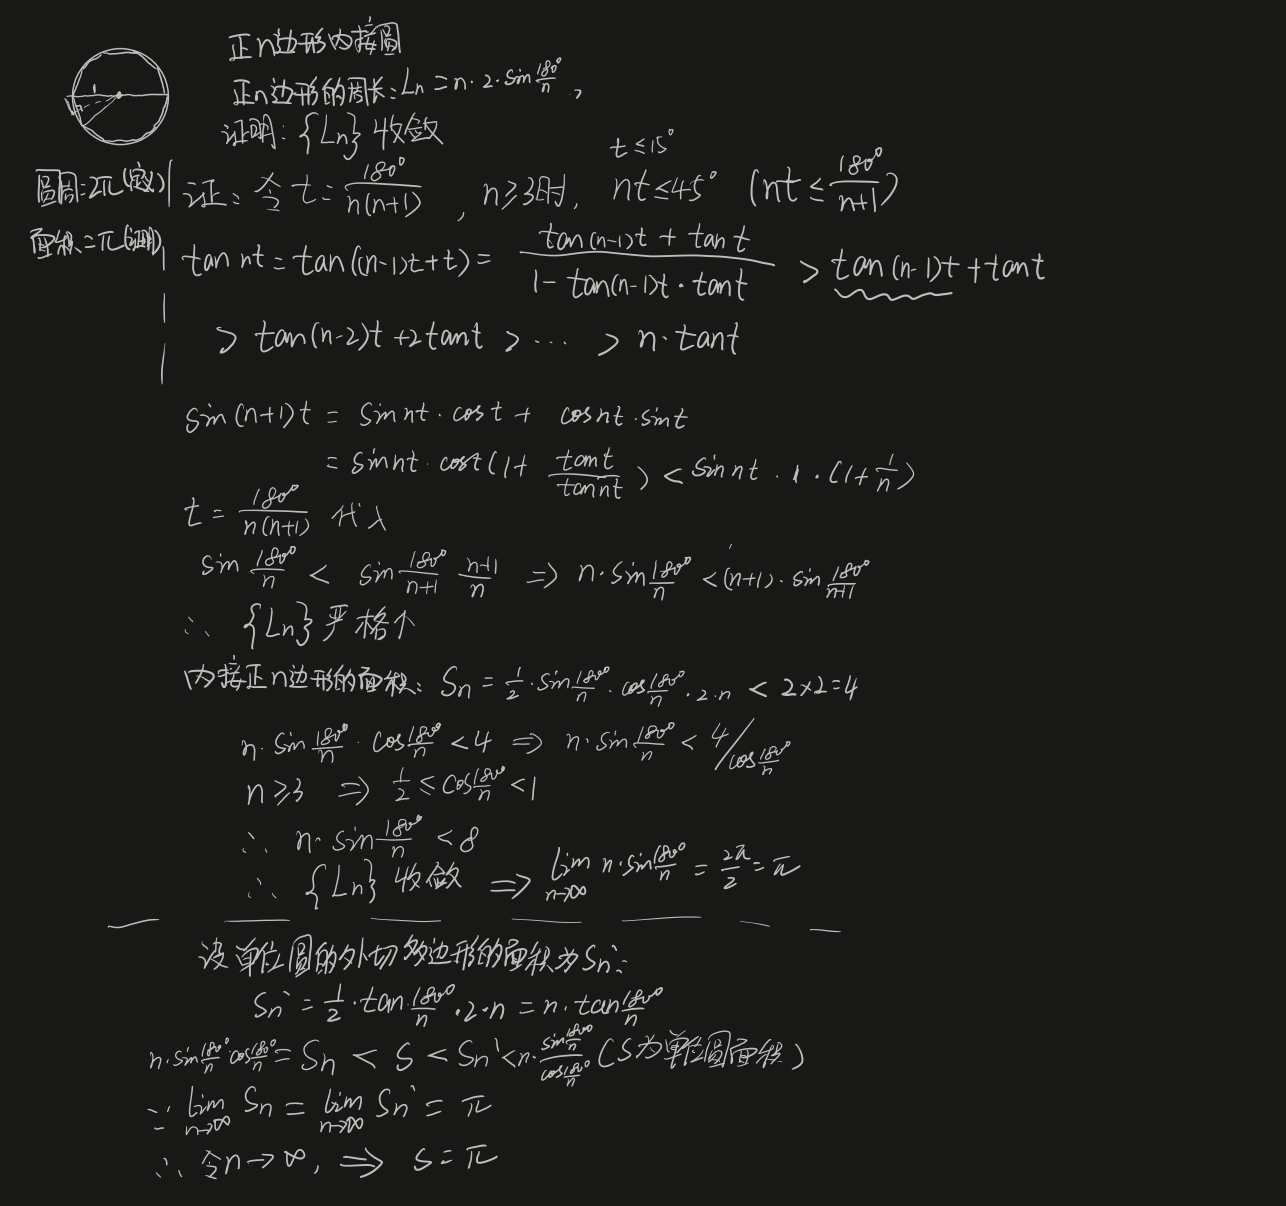 正n边形内接圆
正n边形的周长: Ln = n · 2 · sin 180°/n ,
证明: {Ln} 收敛
1
圆周=2π(定义)
面积=π(证明)
证: 令 t = 180°/n(n+1) , n≥3时, t≤15° nt≤45° (nt ≤ 180°/n+1)
tan nt = tan((n-1)t+t) = tan(n-1)t + tan t / 1 - tan(n-1)t · tan t > tan(n-1)t + tan t
> tan(n-2)t + 2tan t > ··· > n · tan t
sin(n+1)t = sin nt · cos t + cos nt · sin t
= sin nt · cos t (1 + tan t / tan nt) < sin nt · 1 · (1 + 1/n)
t = 180°/n(n+1) 代入
sin 180°/n < sin 180°/n+1 n+1/n ⇒ n · sin 180°/n < (n+1) · sin 180°/n+1
∴ {Ln} 严格↑
内接正n边形的面积: Sn = 1/2 · sin 180°/n · cos 180°/n · 2 · n < 2×2=4
n · sin 180°/n · cos 180°/n < 4 ⇒ n · sin 180°/n < 4 / cos 180°/n
n≥3 ⇒ 1/2 ≤ cos 180°/n < 1
∴ n · sin 180°/n < 8
∴ {Ln} 收敛 ⇒ lim n→∞ n · sin 180°/n = 2π/2 = π
设单位圆的外切多边形的面积为Sn`:
Sn` = 1/2 · tan 180°/n · 2 · n = n · tan 180°/n
n · sin 180°/n cos 180°/n = Sn < S < Sn` < n · sin 180°/n / cos 180°/n (S为单位圆面积)
∵ lim n→∞ Sn = lim n→∞ Sn` = π
∴ 令n→∞, ⇒ S=π